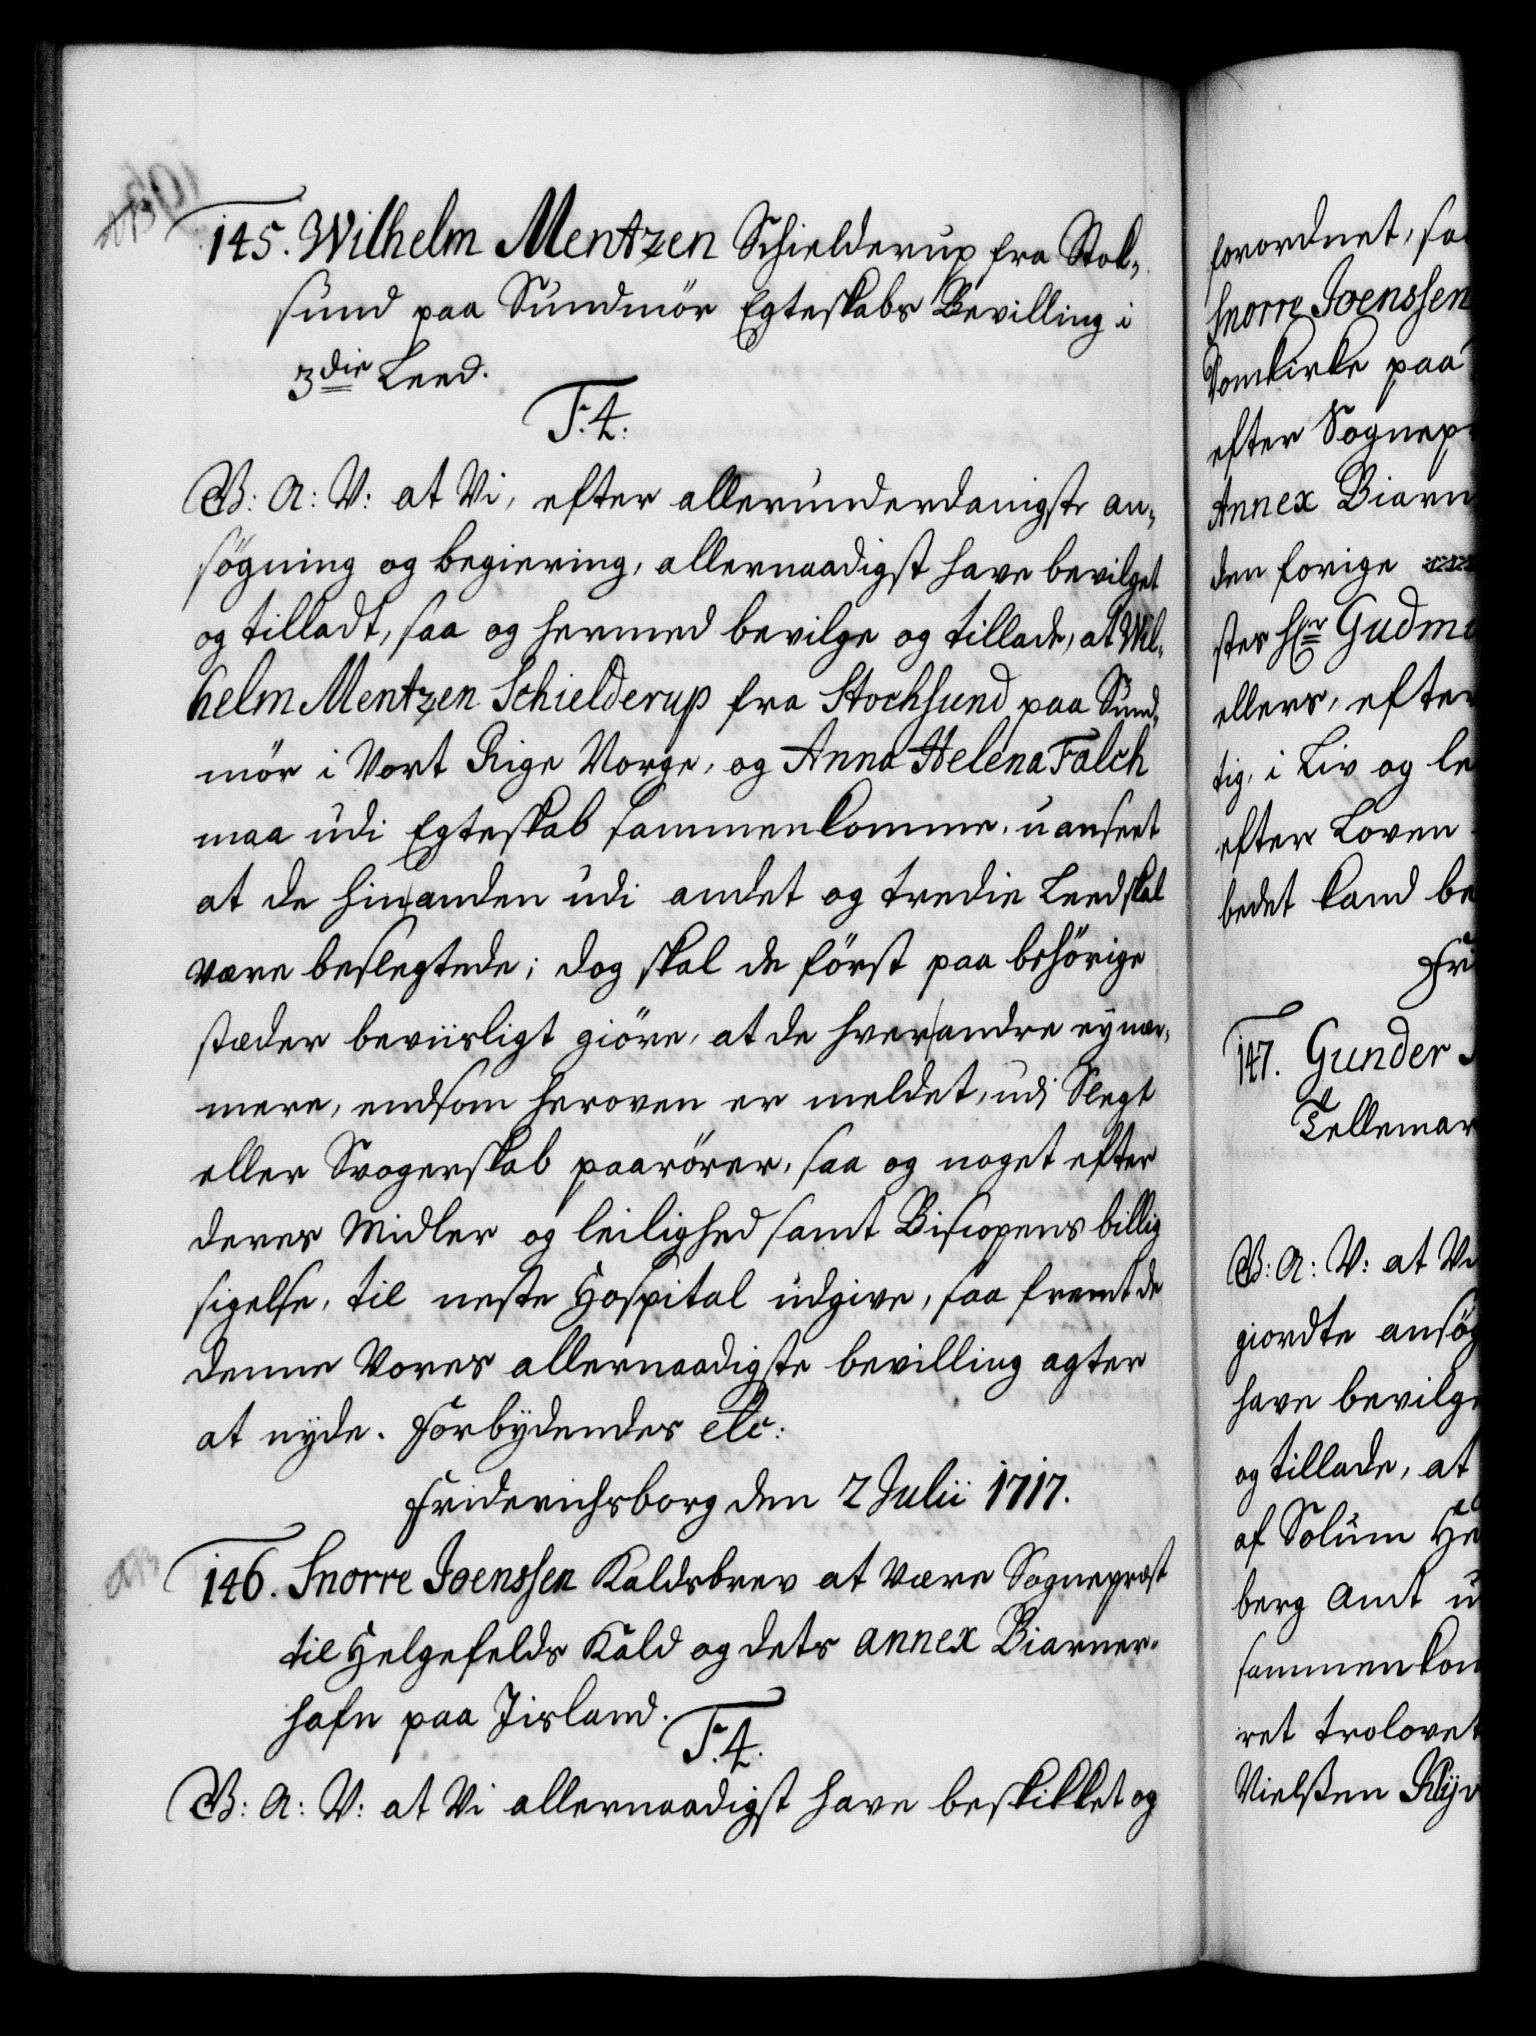 145. Wilhelm Mentzen Schielderup fra Stok-
sund paa Sundmör Egteskabs Bevilling i
3die Leed.
F. 4.
G: A: V: at Vi, efter allerunderdanigste an-
søgning og begiering, allernaadigst have bevilget
og tilladt, saa og hermed bevilge og tillade, at Wil-
helm Mentzen Schielderup fra Stochsund paa Sund-
mör i Vort Rige Norge, og Anna Helena Falch
maa udi Egteskab sammenkomme, uanseet
at de hinanden udi andet og tredie Leed skal
være beslegtede; dog skal de först paa behörige
stæder beviisligt giöre, at de hverandre ey nær-
mere, end som heroven er meldet, udi Slegt
eller Svogerskab paarörer, saa og noget efter
deres Midler og leilighed samt Biscopens billig
sigelse, til neste Hospital udgive, saa fremt de
denne Vores allernaadigste bevilling agter
at nyde. Forbydendes etc:
Friderichsborg den 2 Julii 1717.
146. Snorre Joenssen Kaldsbrev at være Sognepræst
til Helgefelds Kald og dets annex Biarner-
hafn paa Jisland.
F. 4.
G: A: V: at Vi allernaadigst have beskikket og
forordnet, saa
Snorre Joenssen
Domkirke paa
efter Sognepr
Annex Biarn
den forige
ster Hr Gudm
ellers, efter
tig, i Liv og le
efter Loven
bedet kand be
Fri
147. Gunder
Tellemar
G: A: V: at Vi
giordte ansøg
have bevilge
og tillade, at
af Solum He
berg Amt u
sammenkom
ret trolovet
Nielßen